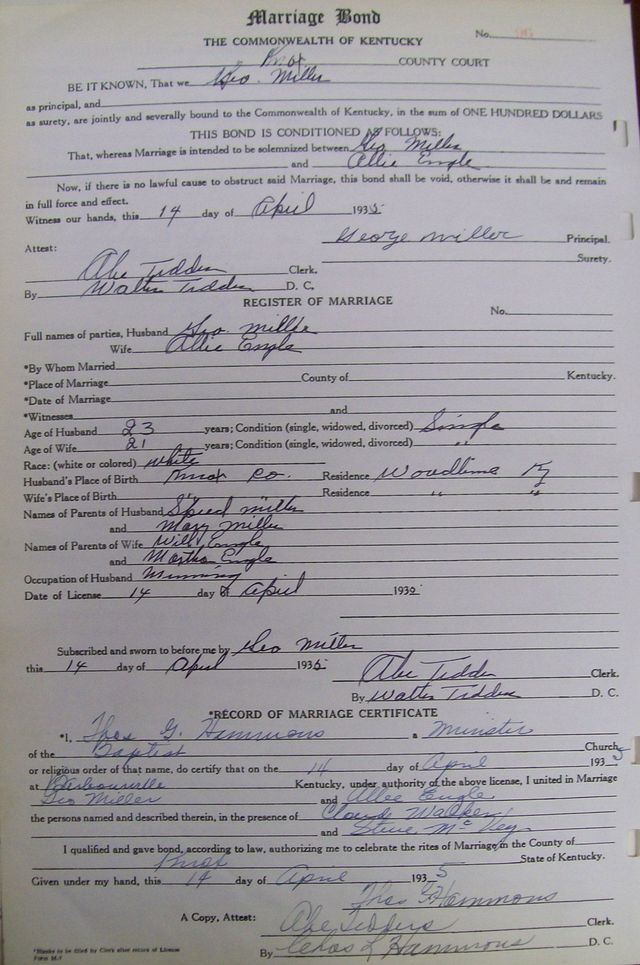 Marriage Bond
No.
THE COMMONWEALTH OF KENTUCKY
Knox COUNTY COURT
BE IT KNOWN, That we Geo. Miller
as principal, and
as surety, are jointly and severally bound to the Commonwealth of Kentucky, in the sum of ONE HUNDRED DOLLARS
THIS BOND IS CONDITIONED AS FOLLOWS:
That, whereas Marriage is intended to be solemnized between Geo Miller
and Allie Engle
Now, if there is no lawful cause to obstruct said Marriage, this bond shall be void, otherwise it shall be and remain
in full force and effect.
Witness our hands, this 14 day of April 1935
George Miller Principal.
Attest: Surety.
Abe Tedders Clerk.
By Walter Tedders D. C.
REGISTER OF MARRIAGE
No.
Full names of parties, Husband Geo. Miller
Wife Allie Engle
*By Whom Married
*Place of Marriage County of Kentucky.
*Date of Marriage
*Witnesses and
Age of Husband 23 years; Condition (single, widowed, divorced) Single
Age of Wife 21 years; Condition (single, widowed, divorced) "
Race: (white or colored) white
Husband's Place of Birth Knox Co. Residence Woodbine Ky
Wife's Place of Birth " Residence " "
Names of Parents of Husband Speed Miller
and Mary Miller
Names of Parents of Wife Will Engle
and Martha Engle
Occupation of Husband Minning
Date of License 14 day of April 1935
Subscribed and sworn to before me by Geo Miller
this 14 day of April 1935
Abe Tedders Clerk.
By Walter Tedders D. C.
*RECORD OF MARRIAGE CERTIFICATE
*I, Thos G. Hammons a Minister
of the Baptist Church,
or religious order of that name, do certify that on the 14 day of April 1935
at Barbourville Kentucky, under authority of the above license, I united in Marriage
Geo Miller and Allee Engle
the persons named and described therein, in the presence of Claude Walker
and Steve McVey
I qualified and gave bond, according to law, authorizing me to celebrate the rites of Marriage in the County of
Knox State of Kentucky.
Given under my hand, this 14 day of April 1935
Thos G Hammons
A Copy, Attest: Abe Tedders Clerk.
By Chas L Hammons D. C.
*Blanks to be filled by Clerk after return of License
Form M-7